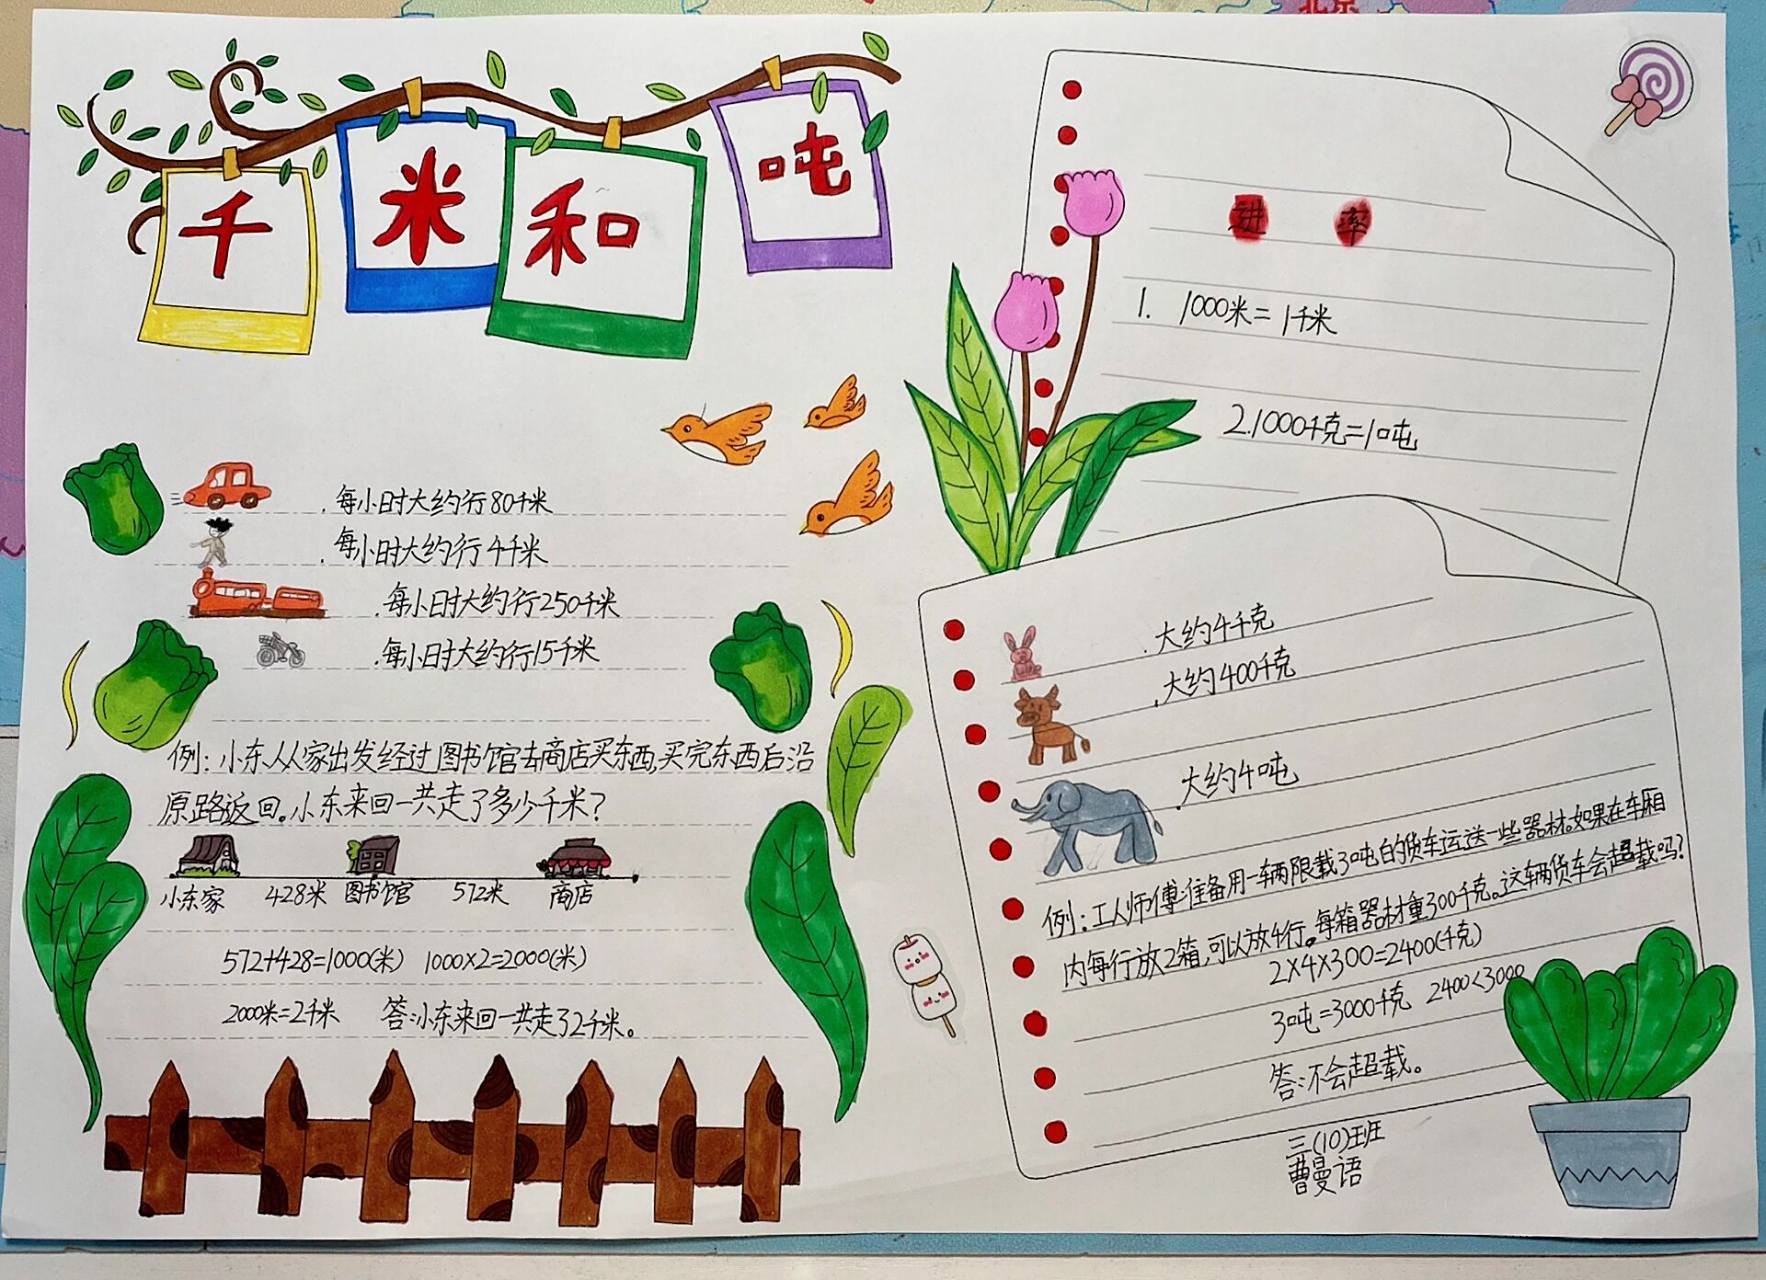 北京
千米和吨
每小时大约行80千米
每小时大约行4千米
每小时大约行250千米
每小时大约行15千米
例:小东从家出发经过图书馆去商店买东西,买完东西后沿
原路返回。小东来回一共走了多少千米?
小东家 428米 图书馆 572米 商店
572+428=1000(米) 1000×2=2000(米)
2000米=2千米 答:小东来回一共走了2千米。
进 率
1. 1000米=1千米
2.1000千克=1吨
大约4千克
大约400千克
大约4吨
例:工人师傅准备用一辆限载3吨的货车运送一些器材。如果在车厢
内每行放2箱,可以放4行。每箱器材重300千克。这辆货车会超载吗?
2×4×300=2400(千克)
3吨=3000千克 2400<3000
答:不会超载。
三(10)班
曹曼语